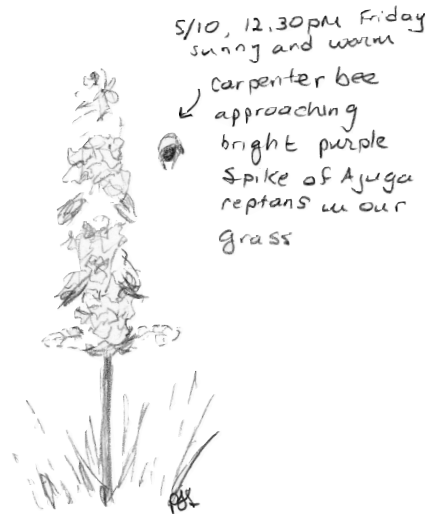 5/10, 12.30pm Friday
sunny and warm
carpenter bee
approaching
bright purple
spike of Ajuga
reptans in our
grass